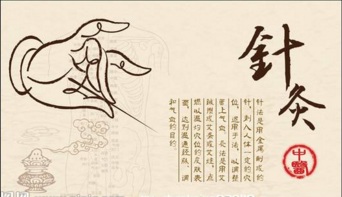 針灸
中醫
针法是用金属制成的
针，刺入人体一定的穴
位，运用手法，以调整
气血，灸法是用艾
绒搓成艾条或艾炷，点
燃以温灼穴位的皮肤表
面，达到温通经脉、调
和气血的目的